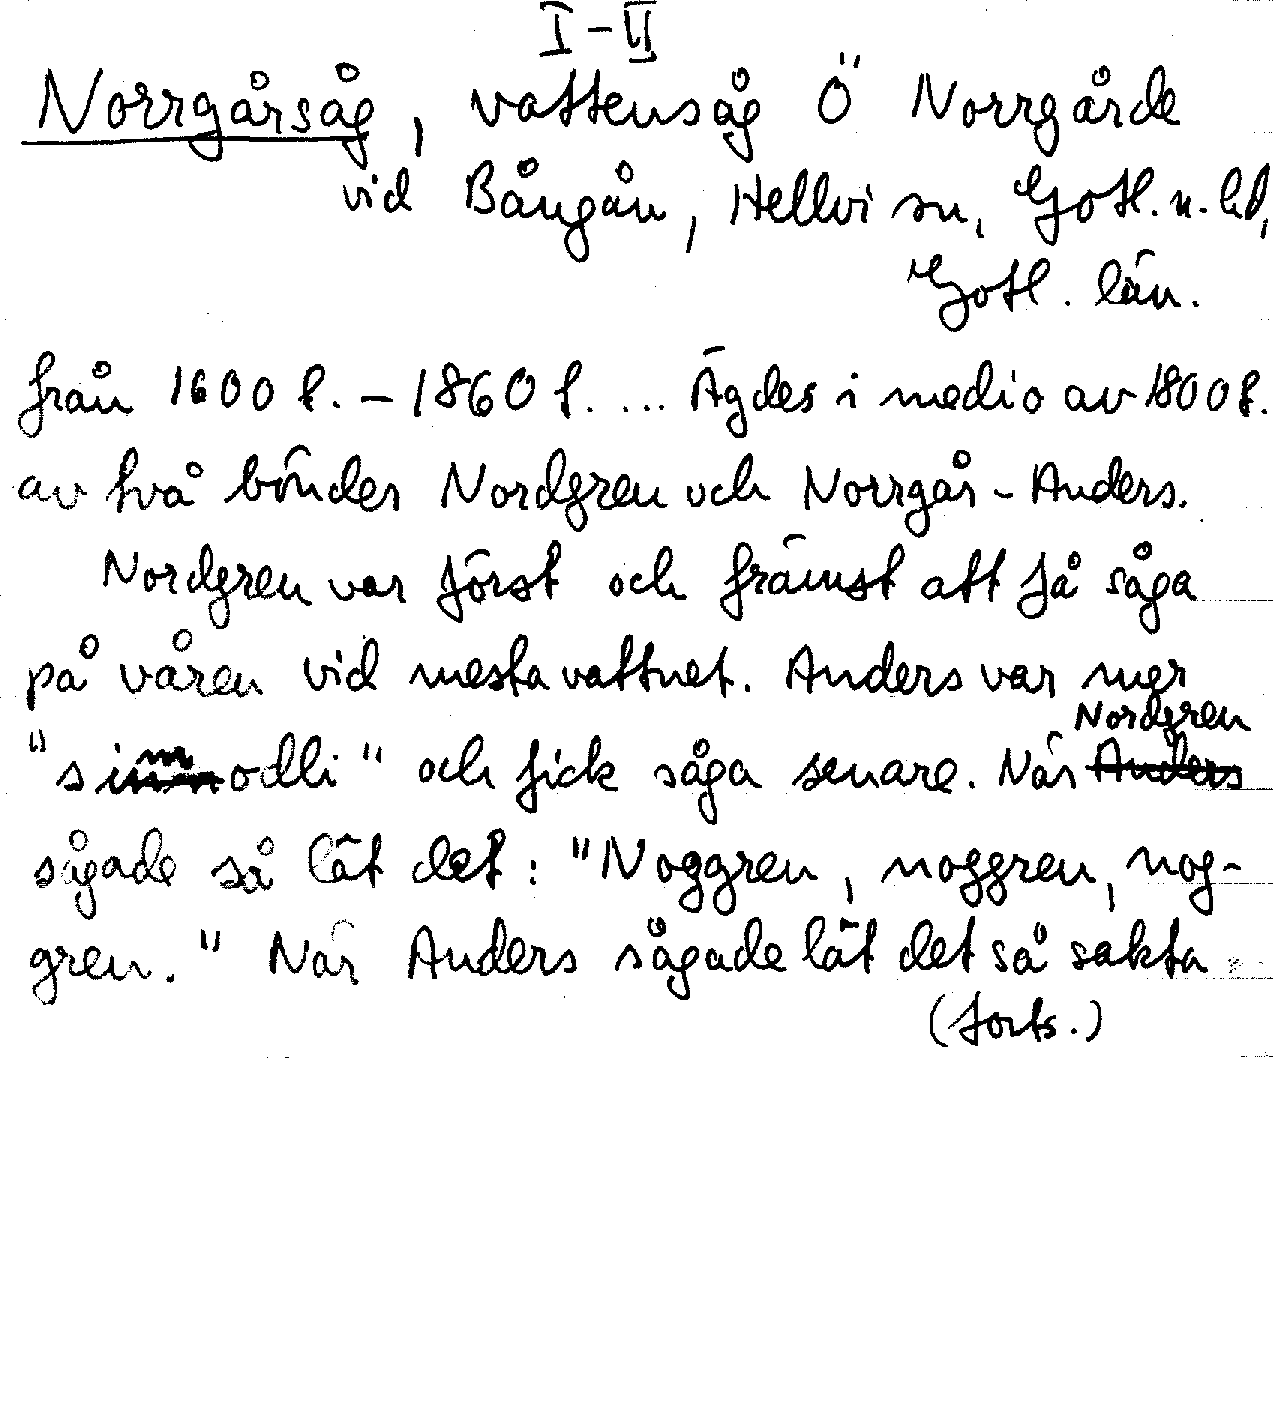 I-II
Norrgårsåg, vattensåg Ö Norrgårde
vid Bångån, Hellvi sn, Gotl. n. hd,
Gotl. län.
från 1600 t. - 1860 t. ... Ägdes i medio av 1800 t.
av två bönder Nordgren och Norrgår-Anders.
Nordgren var först och främst att få såga
på våren vid mesta vattnet. Anders var mer
Nordgren
"simodli" och fick såga senare. När Anders
sågade så lät det: "Noggren, noggren, nog-
gren." När Anders sågade lät det så sakta
(forts.)